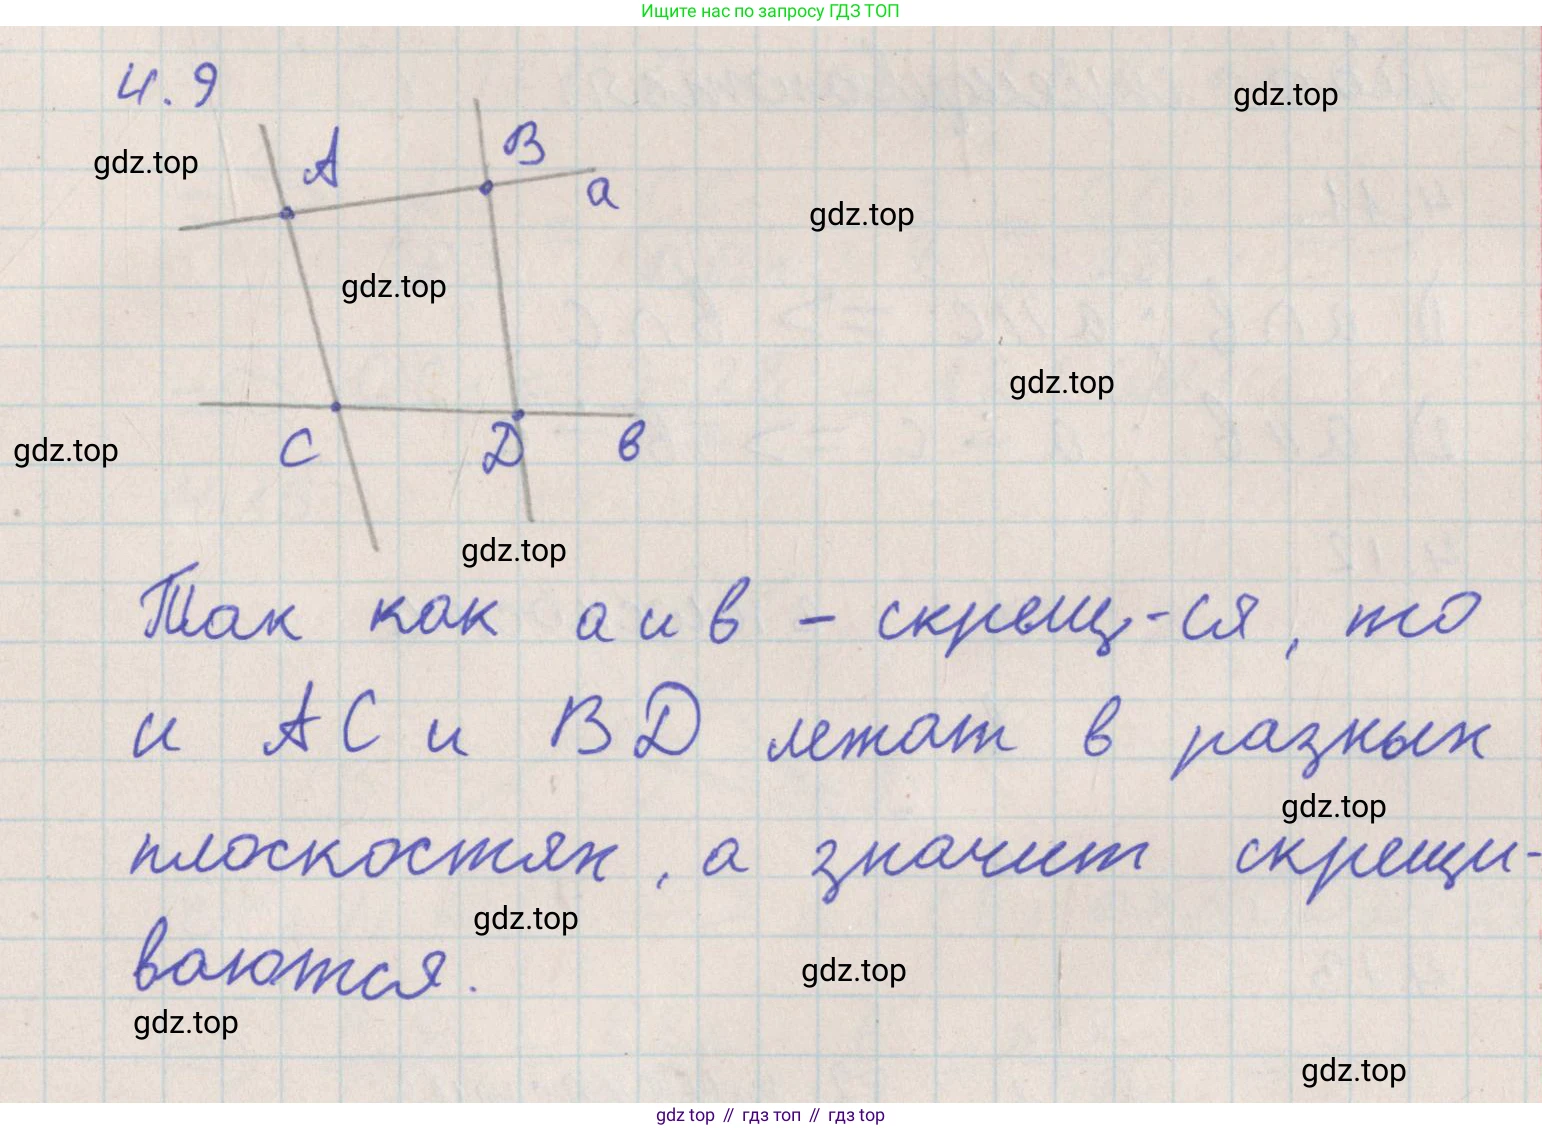 Ищите нас по запросу ГДЗ ТОП
4.9
gdz.top
gdz.top
A
B
a
gdz.top
gdz.top
gdz.top
gdz.top
C
D
в
gdz.top
Так как а и в – скрещ-ся, то
и АС и ВD лежат в разных
gdz.top
плоскостях, а значит скрещи-
gdz.top
ваются.
gdz.top
gdz.top
gdz.top
gdz top // гдз топ // gdz top